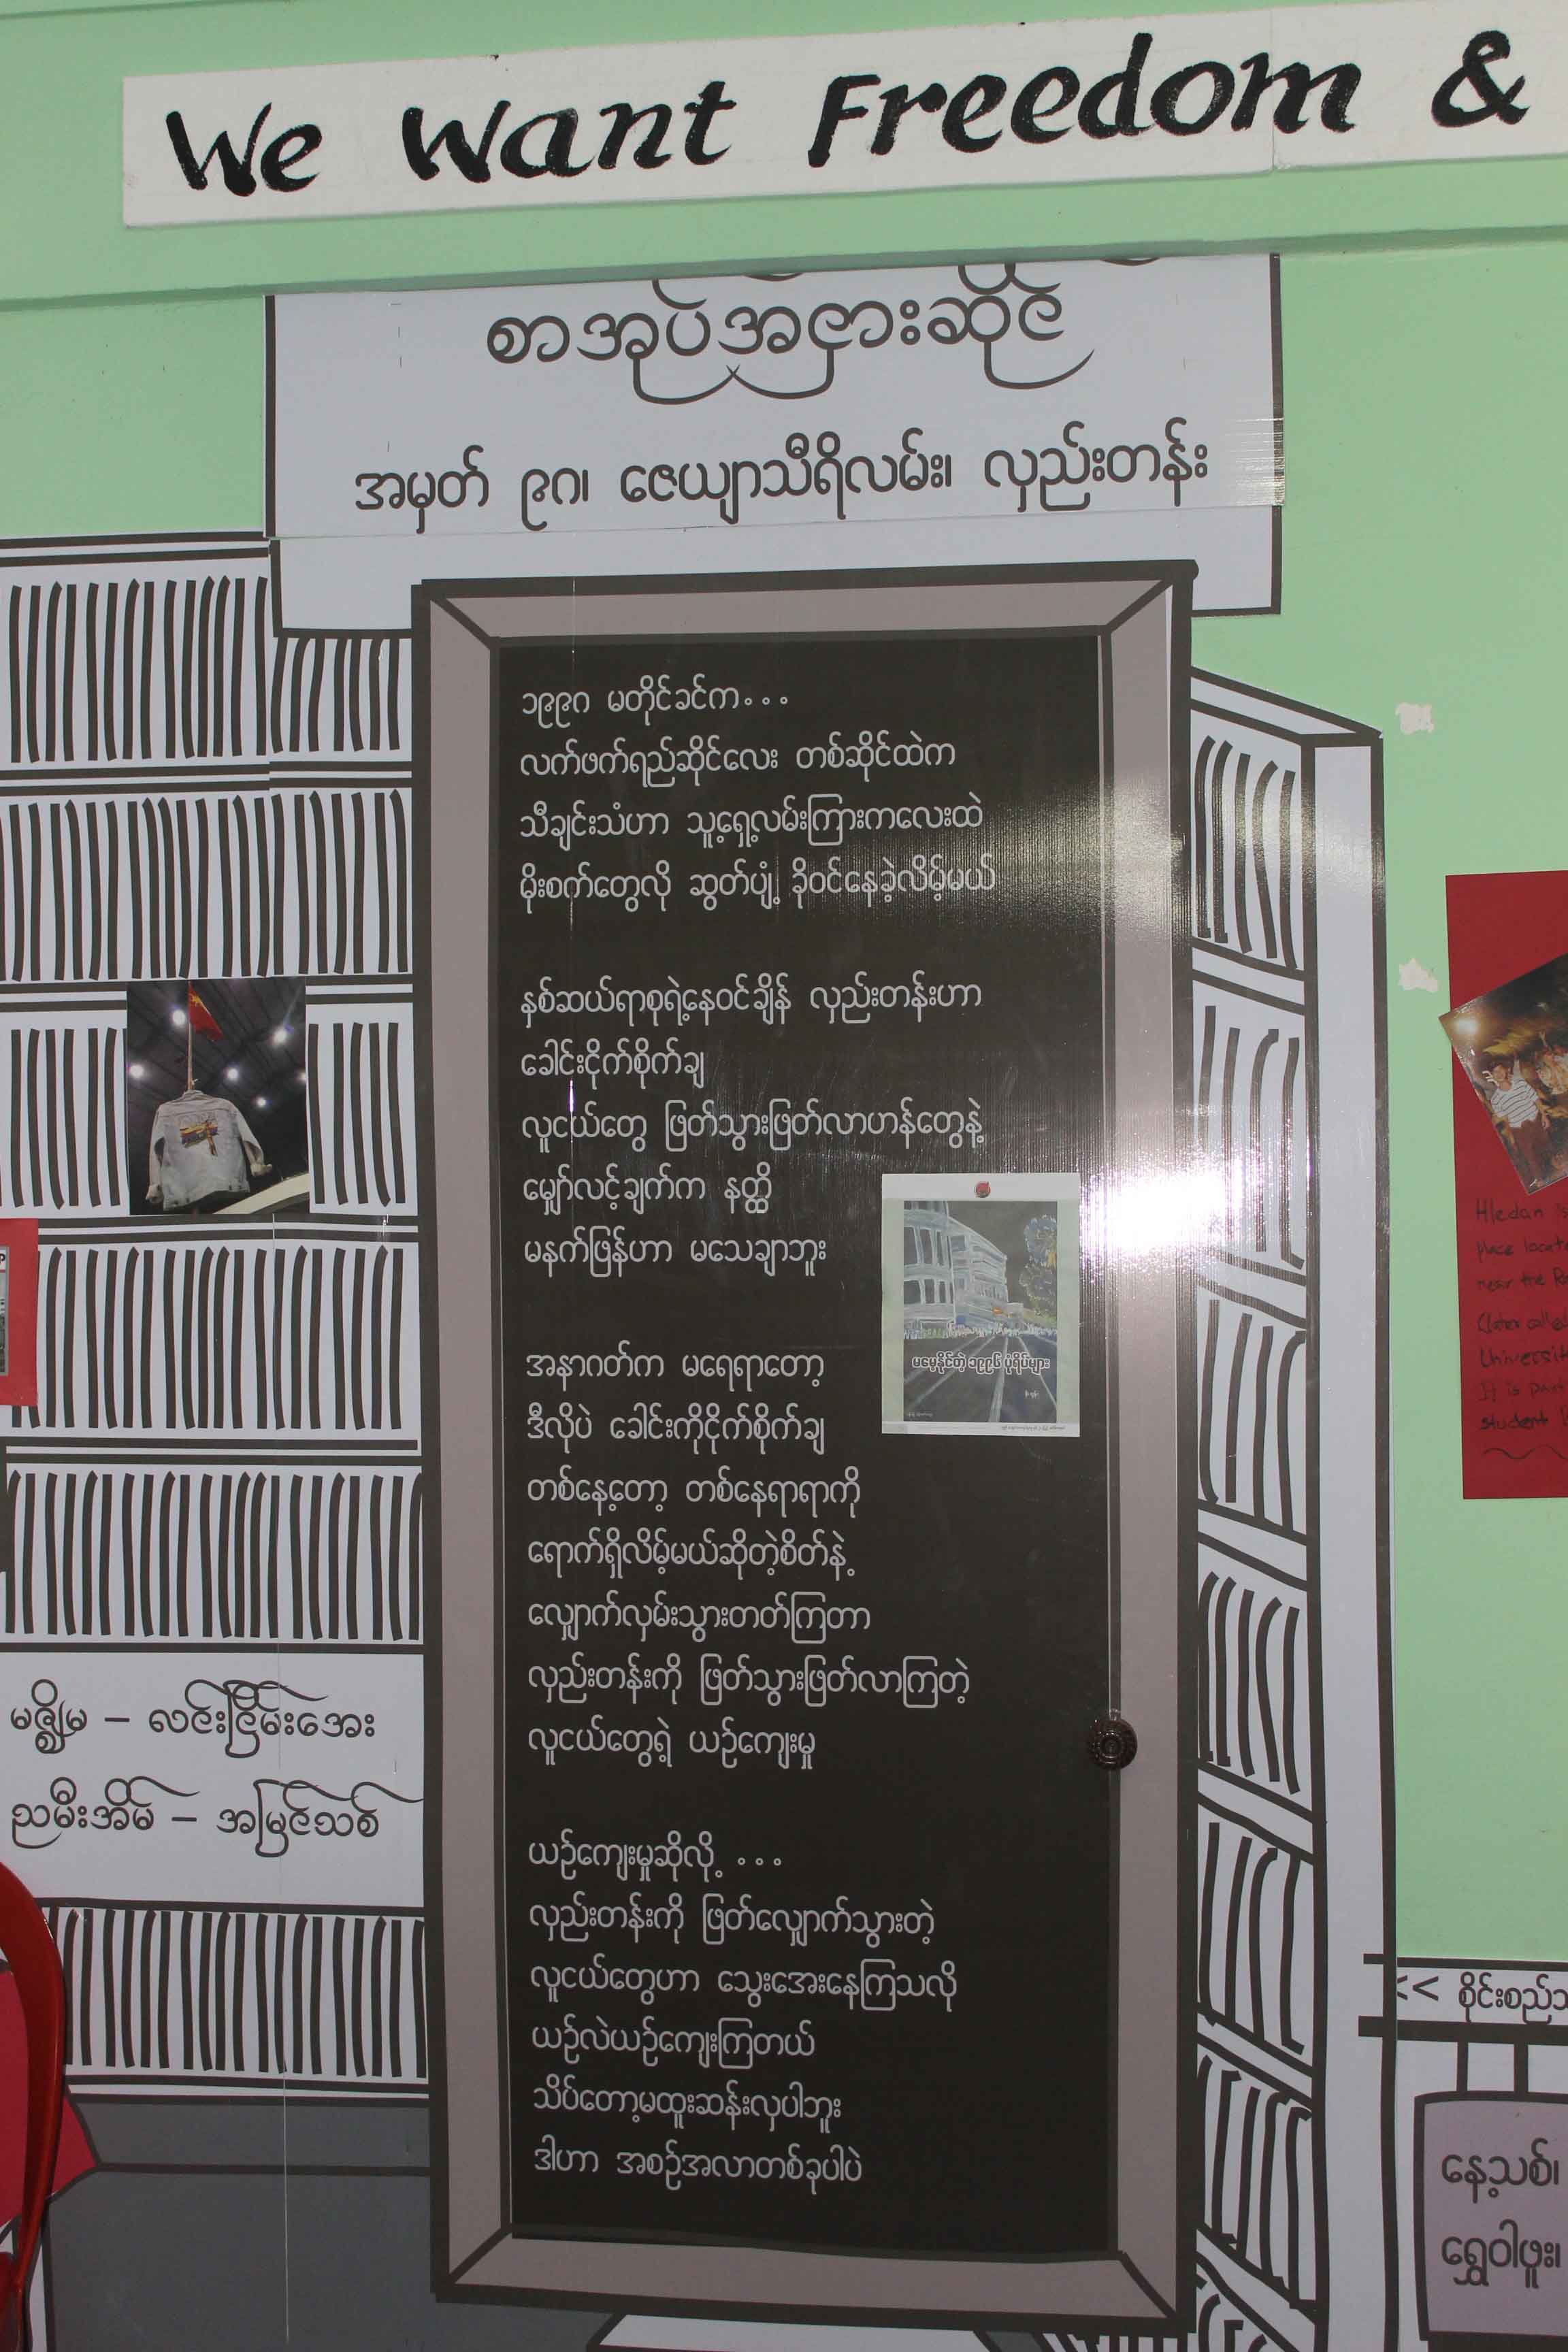 We want Freedom &
စာအုပ်အငှားဆိုင်
အမှတ် ၉၈၊ ဇေယျာသီရိလမ်း၊ လှည်းတန်း
၁၉၉၈ မတိုင်ခင်က...
လက်ဖက်ရည်ဆိုင်လေး တစ်ဆိုင်ထဲက
သီချင်းသံဟာ သူ့ရှေ့လမ်းကြားကလေးထဲ
မိုးစက်တွေလို ဆွတ်ပျံ့ ခိုဝင်နေခဲ့လိမ့်မယ်
နှစ်ဆယ်ရာစုရဲ့နေဝင်ချိန် လှည်းတန်းဟာ
ခေါင်းငိုက်စိုက်ချ
လူငယ်တွေ ဖြတ်သွားဖြတ်လာဟန်တွေနဲ့
မျှော်လင့်ချက်က နတ္ထိ
မနက်ဖြန်ဟာ မသေချာဘူး
အနာဂတ်က မရေရာတော့
ဒီလိုပဲ ခေါင်းကိုငိုက်စိုက်ချ
တစ်နေ့တော့ တစ်နေရာရာကို
ရောက်ရှိလိမ့်မယ်ဆိုတဲ့စိတ်နဲ့
လျှောက်လှမ်းသွားတတ်ကြတာ
လှည်းတန်းကို ဖြတ်သွားဖြတ်လာကြတဲ့
လူငယ်တွေရဲ့ ယဉ်ကျေးမှု
ယဉ်ကျေးမှုဆိုလို့ ...
လှည်းတန်းကို ဖြတ်လျှောက်သွားတဲ့
လူငယ်တွေဟာ သွေးအေးနေကြသလို
ယဉ်လဲယဉ်ကျေးကြတယ်
သိပ်တော့မထူးဆန်းလှပါဘူး
ဒါဟာ အစဉ်အလာတစ်ခုပါပဲ
မမေ့နိုင်တဲ့ ၁၉၉၆ ပုံရိပ်များ
မဇ္ဈိမ – လင်းငြိမ်းအေး
ညမီးအိမ် – အမြင်သစ်
Hledan is
place locate
near the
(later called
Universit
It is part
student
<< စိုင်းစည်သ
နေ့သစ်၊
ရွှေဝါဖူး၊